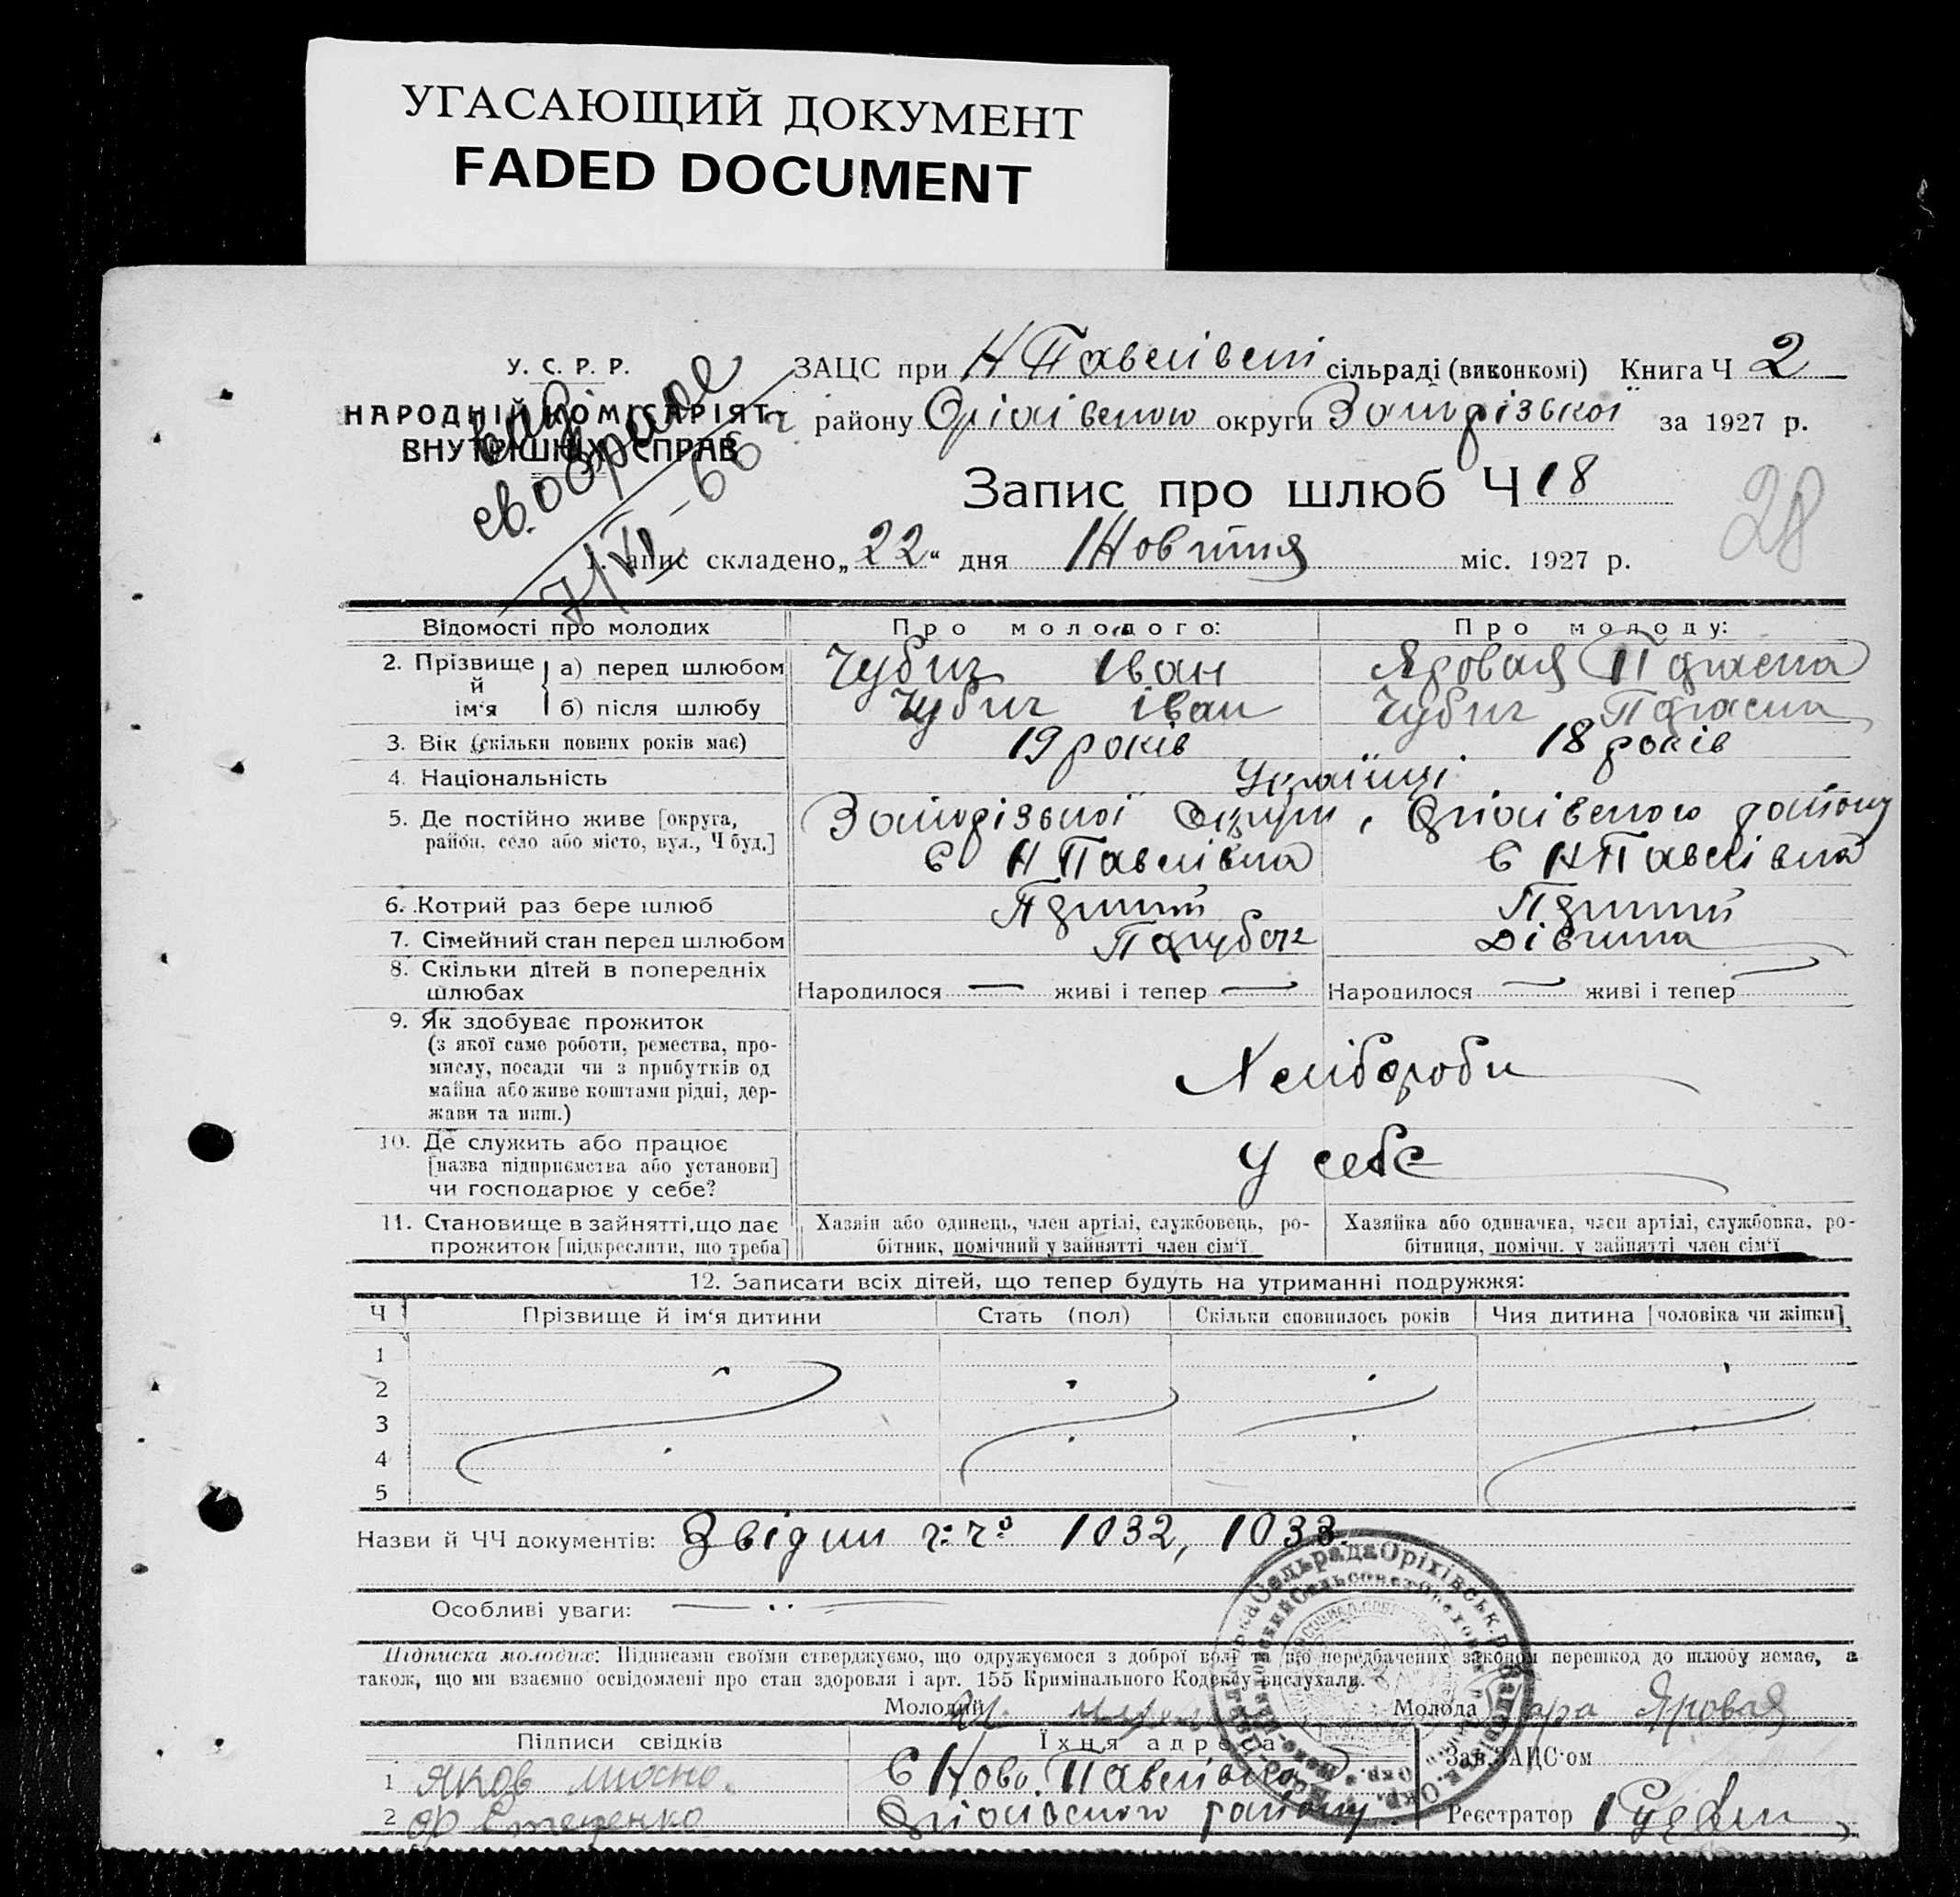 УГАСАЮЩИЙ ДОКУМЕНТ
FADED DOCUMENT
У. С. Р. Р.
НАРОДНІЙ КОМІСАРІЯТ
ВНУТРІШНІХ СПРАВ
7/VI-66 г
ЗАЦС при Н Павлівскі сільраді (виконкомі) Книга Ч 2
району Оріхівського округи Запорізької за 1927 р.
Запис про шлюб Ч 18
28
1. апис складено „22“ дня Жовтня міс. 1927 р.
Відомості про молодих
Про молодого:
Про молоду:
2. Прізвище й ім‘я
а) перед шлюбом Чубич Іван Яровая Параска
б) після шлюбу Чубич Іван Чубич Параска
3. Вік (скільки повних років має) 19 років 18 років
4. Національність Українці
5. Де постійно живе [округа, район, село або місто, вул., Ч буд.]
Запорізької Округи, Оріхівського району
Є Н Павлівка Є Н Павлівка
6. Котрий раз бере шлюб Перший Перший
7. Сімейний стан перед шлюбом Парубок Дівчина
8. Скільки дітей в попередніх шлюбах
Народилося — живі і тепер — Народилося — живі і тепер —
9. Як здобуває прожиток
(з якої саме роботи, ремества, про-
мислу, посади чи з прибутків од
майна або живе коштами рідні, дер-
жави та инш.)
Хлібороби
10. Де служить або працює
[назва підприємства або установи]
чи господарює у себе?
у себе
11. Становище в зайнятті, що дає
прожиток [підкреслити, що треба]
Хазяін або одинець, член артілі, службовець, ро-
бітник, помічний у зайнятті член сім‘ї
Хазяйка або одиначка, член артілі, службовка, ро-
бітниця, помічн. у зайнятті член сім‘ї
12. Записати всіх дітей, що тепер будуть на утриманні подружжя:
Ч Прізвище й ім‘я дитини Стать (пол) Скільки сповнилось років Чия дитина [чоловіка чи жінки]
1
2
3
4
5
Назви й ЧЧ документів: Звідки 1032, 1033
Особливі уваги: —
Підписка молодих: Підписами своїми стверджуємо, що одружуємося з доброї волі що передбачених законом перешкод до шлюбу немає, а
також, що ми взаємно освідомлені про стан здоровля і арт. 155 Кримінального Кодексу вислухали.
Молодий Молода Яровая
Підписи свідків Їхня адреса Зав. ЗАЦС‘ом
1 Яков Є Ново Павлівка
2 Степенко Оріхівського району Реєстратор